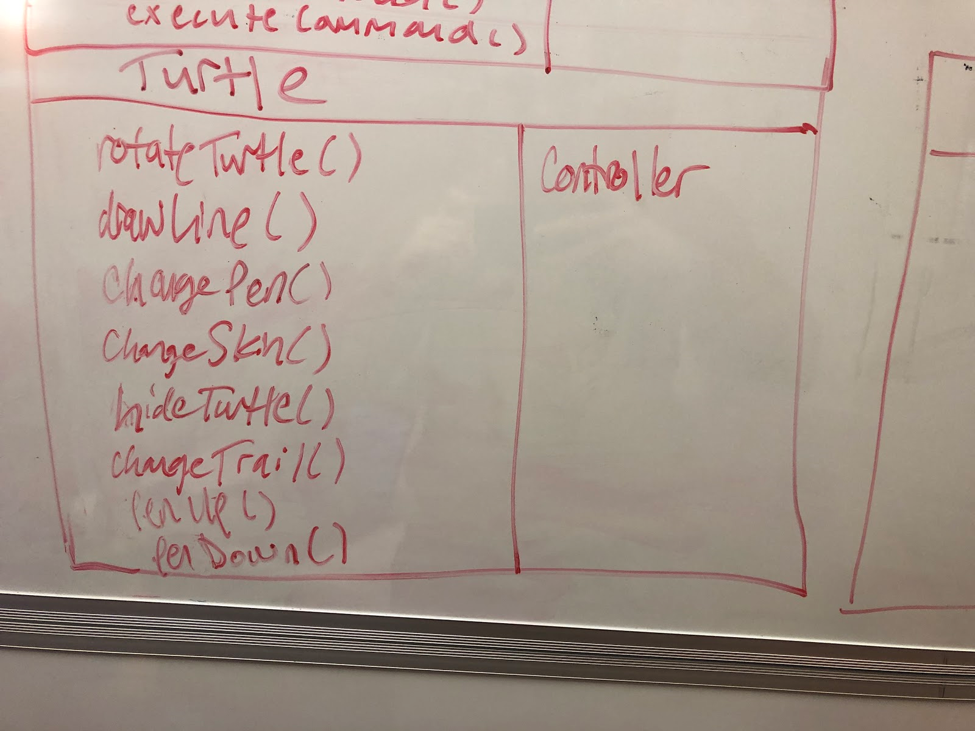 executeCommand()
Turtle
rotateTurtle()
drawLine()
changePen()
changeSkin()
hideTurtle()
changeTrail()
penUp()
penDown()
Controller